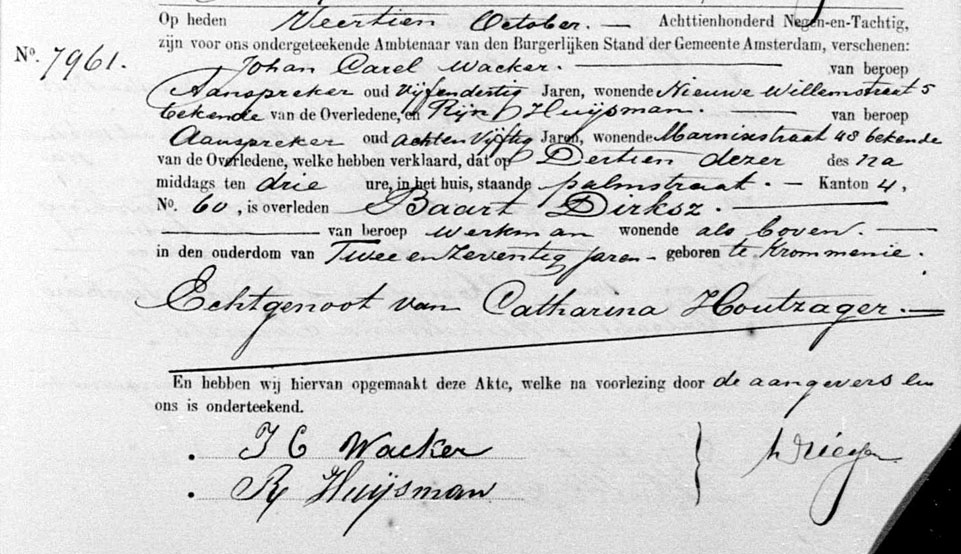 Op heden Veertien October. — Achttienhonderd Negen-en-Tachtig,
Nº. 7961. zijn voor ons ondergeteekende Ambtenaar van den Burgerlijken Stand der Gemeente Amsterdam, verschenen:
Johan Carel Wacker. — van beroep
Aanspreker oud Vijfendertig Jaren, wonende Nieuwe Willemstreet 5
bekende van de Overledene, en Rijn Huijsman. — van beroep
Aanspreker oud achten Vijftig Jaren, wonende Marnixstraat 48 bekende
van de Overledene, welke hebben verklaard, dat op Dertien dezer des na
middags ten drie ure, in het huis, staande palmstraat. — Kanton 4,
No. 60, is overleden Baart Dirksz. —
— van beroep werkman wonende als boven. —
in den ouderdom van Twee en Zeventig jaren - geboren te Krommenie.
Echtgenoot van Catharina Houtzager. —
En hebben wij hiervan opgemaakt deze Akte, welke na voorlezing door de aangevers en
ons is onderteekend.
J C Wacker
R Huijsman